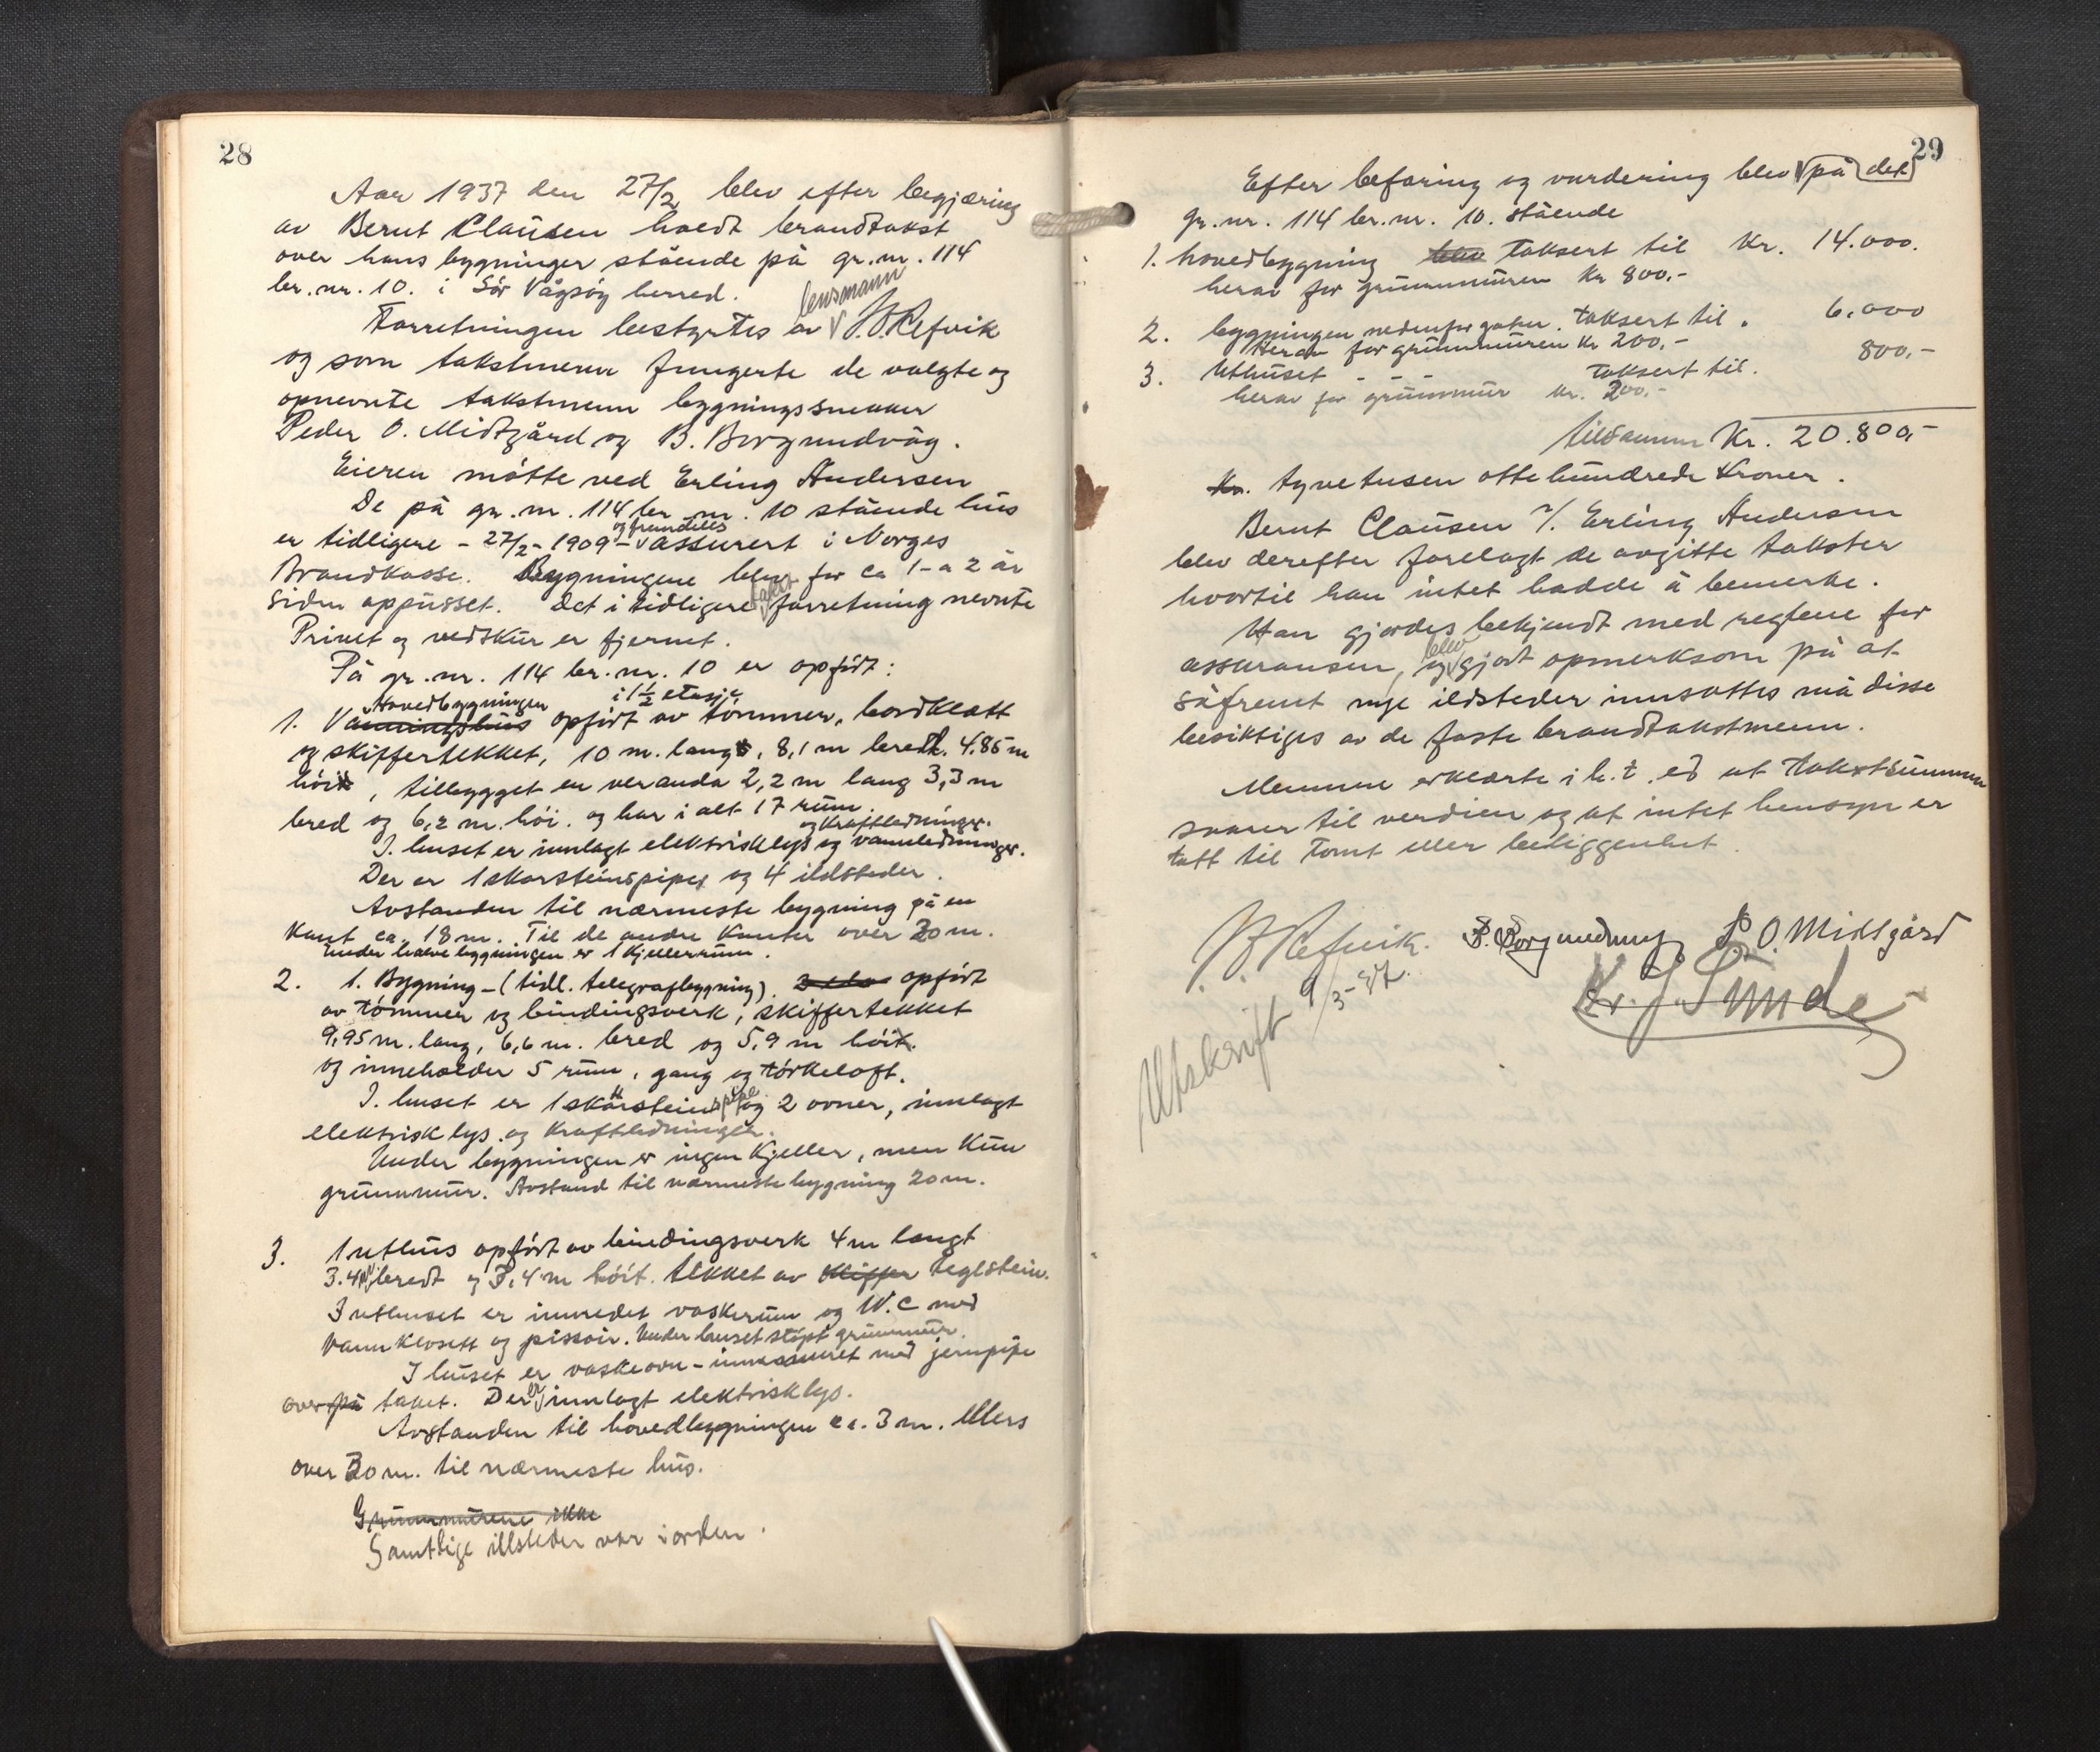 28
Aar 1937 den 27/2 blev efter begjæring
av Bernt Clausen holdt brandtakst
over hans bygninger stående på gr.nr. 114
br.nr. 10. i Sör Vågsöy herred.
lensmann
Forretningen bestyrtes av J. Refvik
og som takstmenn fungerte de valgte og
opnevnte takstmenn bygningssnekker
Peder O. Midtgård og B. Borgundvåg.
Eieren mötte ved Erling Andersen
De på gr.nr. 114 br.nr. 10 stående hus
og fremdeles
er tidligere - 27/2 - 1909 - assurert i Norges
Brandkasse. Bygningene blev for ca 1 - a 2 år
siden oppusset. Det i tidligere takst forretning nevnte
Privet og vedskur er fjernet.
På gr.nr. 114 br.nr. 10 er opfört:
Hovedbygningen i 1½ etasje
1. Vaaningshus opfört av tömmer, bordklætt
og skiffertekket, 10 m. lang, 8,1 m bred. 4.85 m
höi, tilbygget en veranda 2,2 m lang 3,3 m
bred og 6,2 m. höi. og har i alt 17 rum.
og kraftledninger.
I. huset er innlagt elektrisklys og vannledninger.
Der er 1 skorsteinspipe og 4 ildsteder.
Avstanden til nærmeste bygning på en
kant ca. 18 m. Til de andre kanter over 30 m.
Under halve bygningen er 1 kjellerrum.
2. 1. Bygning - (tidl. telegrafbygning). opfört
av tömmer og bindingsverk, skiffertekket
9,95 m. lang, 6,6 m. bred og 5,9 m höi.
og inneholder 5 rum, gang og törkeloft.
I. huset er 1 skorsteinspipe og 2 ovner, innlagt
elektrisk lys. og kraftledninger.
Under bygningen er ingen kjeller, men kun
grunnmur. Avstand til nærmeste bygning 20 m.
3. 1 uthus opfört av bindingsverk 4 m langt
3.4 m bredt og 3,4 m höit. tekket av skiffer teglstein.
I uthuset er innredet vaskerum og W.C med
vannklosett og pissoir. Under huset stöpt grunnmur.
I huset er vaskeovn - innmuret med jernpipe
over på taket. Der er innlagt elektrisklys.
Avstanden til hovedbygningen ca. 3 m. Ellers
over 30 m. til nærmeste hus.
Grunnmurene ikke
Samtlige illsteder var i orden.
29
Efter befaring og vurdering blev på det
gr.nr. 114 br.nr. 10. stående
1. hovedbygning blev taksert til Kr. 14.000.
herav for grunnmuren Kr 800.-
2. bygningen nedenfor gaten. taksert til. 6.000
Herav for grunnmuren Kr 200.-
3. Uthuset - - - taksert til. 800.-
herav for grunnmur kr. 200.-
tilsammen Kr. 20.800,-
Kr. tyvetusen otte hundrede kroner.
Bernt Clausen v/. Erling Andersen
blev derefter forelagt de avgitte takster
hvortil han intet hadde å bemerke.
Han gjordes bekjendt med reglene for
assuransen, og blev gjort opmerksom på at
såfremt nye ildsteder innsattes må disse
besiktiges av de faste brandtakstmenn.
Mennene erklærte i h.t. ed at takstsummen
svarer til verdien og at intet hensyn er
tatt til tomt eller beliggenhet.
J. Refvik. B. Borgundvåg P. O. Midtgård
Kr. J. Sunde
Utskrift 9/3-37.